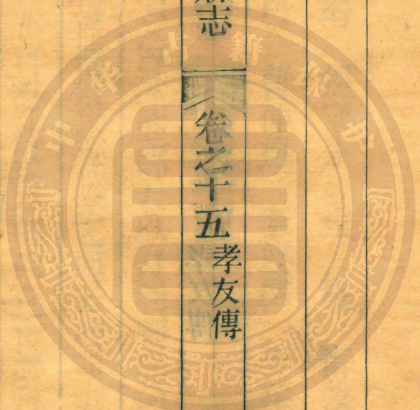 志
卷之十五
孝友傳